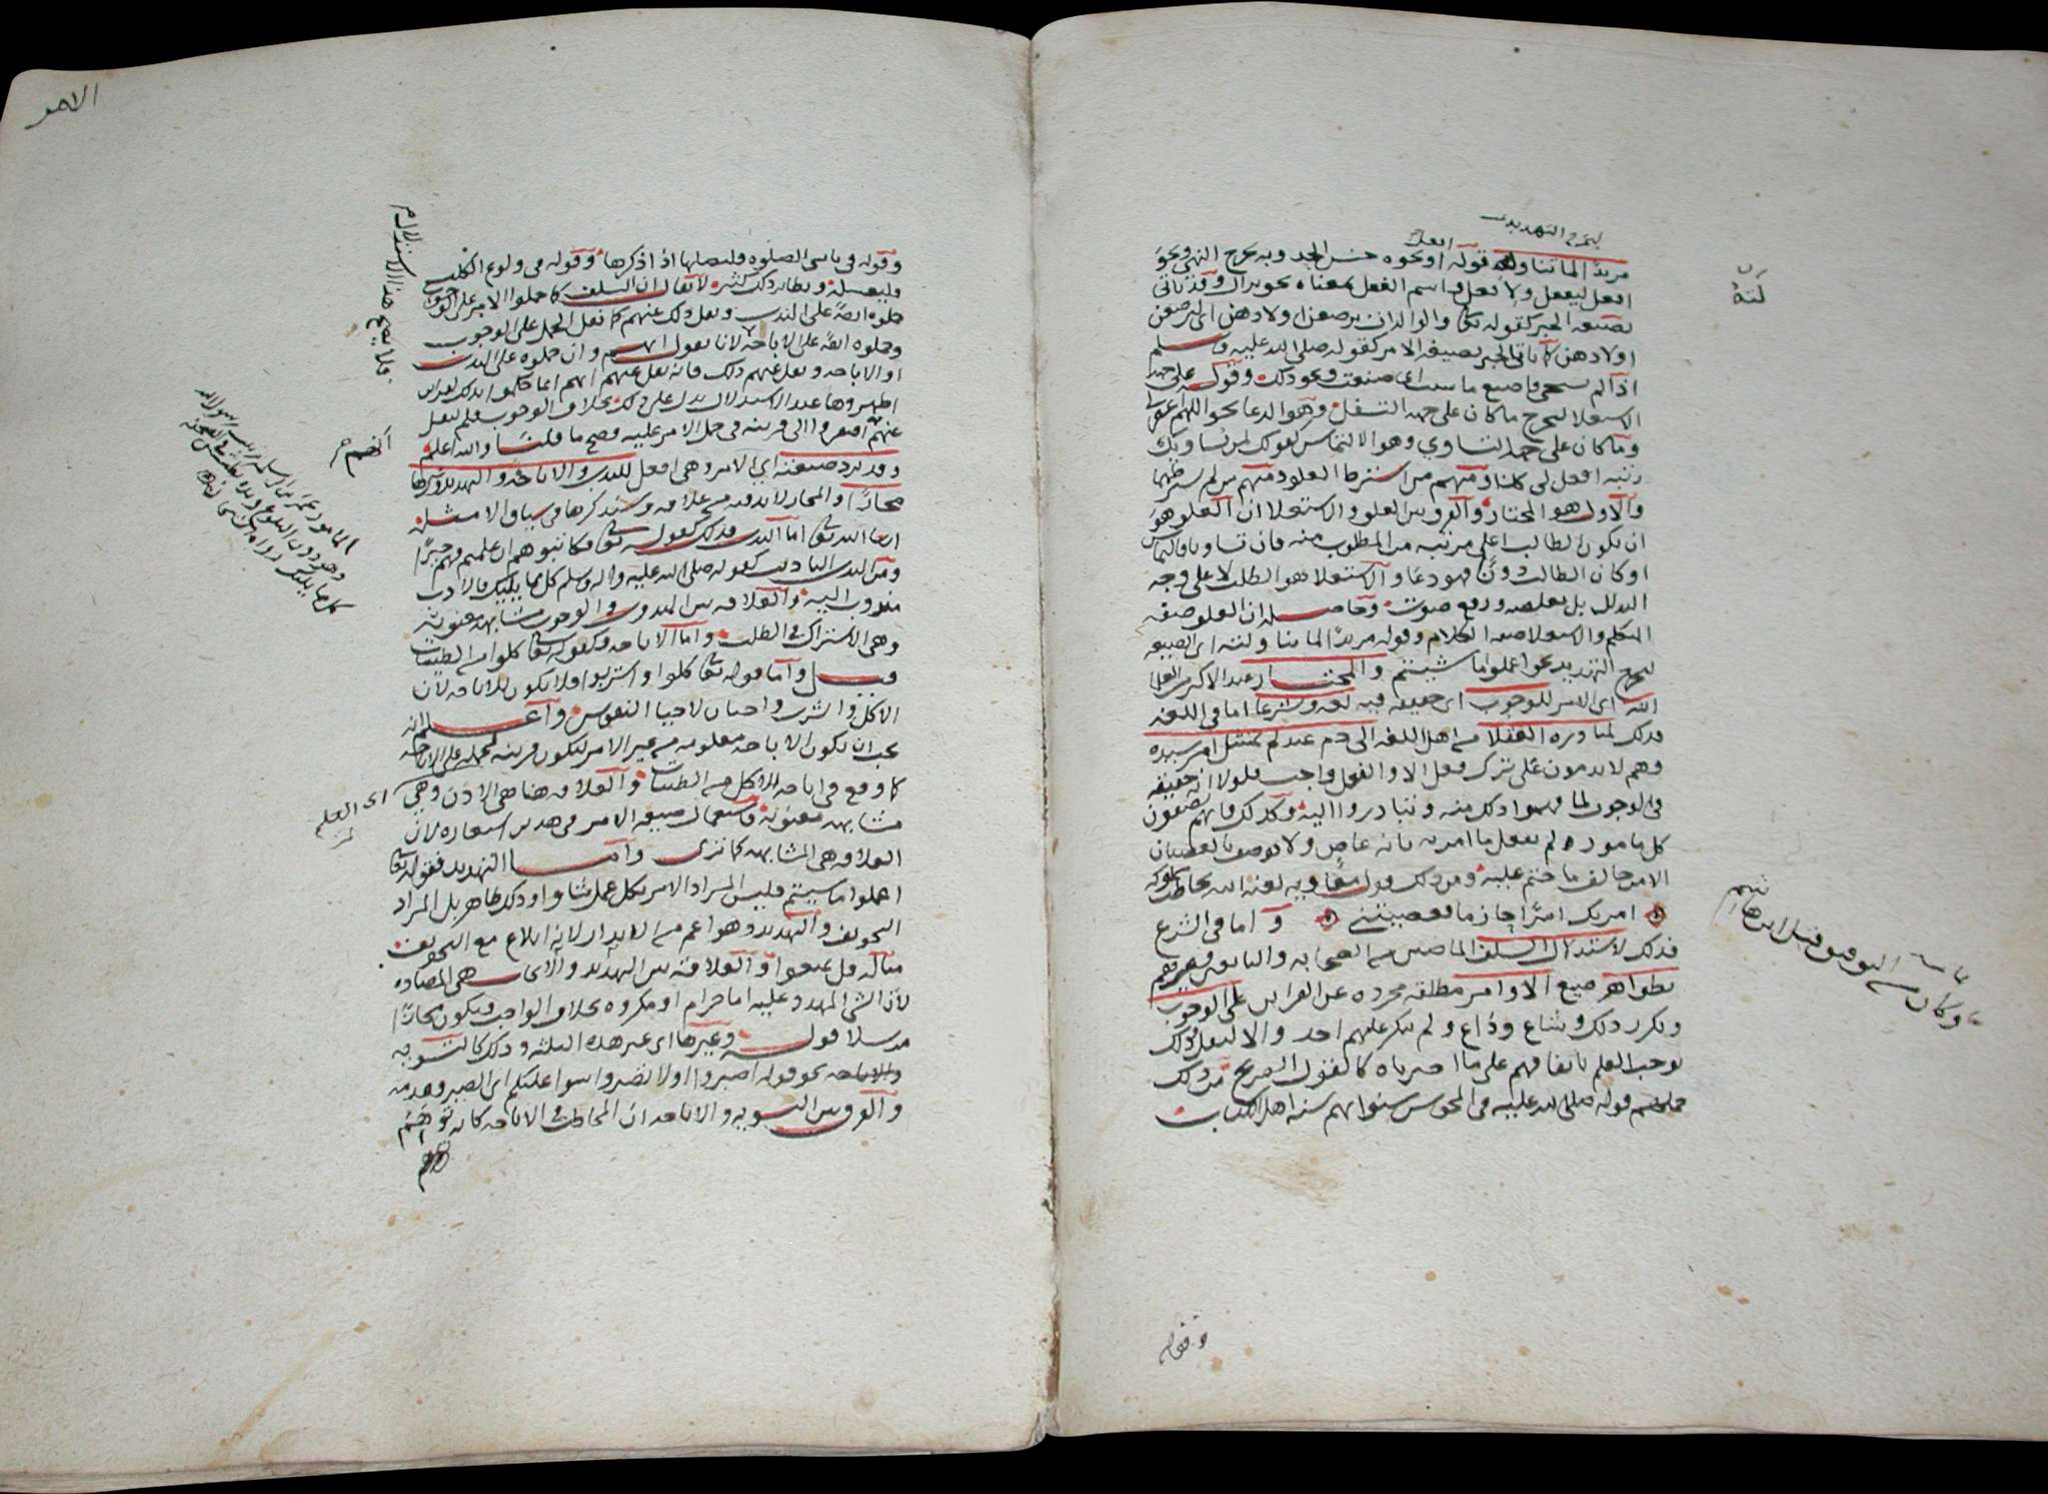 ليخرج التهديد
افعل
مريدًا لما تناوله قوله او نحوه جنس الحد وبه يخرج النهي ونحو
افعل ليفعل ولا تفعل واسم الفعل بمعناه نحو نزال وقد ياتي
بصيغة الخبر كقوله تعالى والوالدات يرضعن اولادهن اي ليرضعن
اولادهن كما ياتي الخبر بصيغة الامر كقوله صلى الله عليه وسلم
اذا لم تستحي فاصنع ما شئت اي صنعت ونحو ذلك وقوله على جهة
الاستعلا ليخرج ما كان على جهة التسفل وهو الدعا نحو اللهم اغفر لي
وما كان على جهة التساوي وهو الالتماس كقولك لمن يساويك
رتبة افعل لي كذا ومنهم من اشترط العلو ومنهم من لم يشترطهما
والاول هو المختار والفرق بين العلو والاستعلا ان العلو هو
ان يكون الطالب اعلى مرتبة من المطلوب منه فان تساويا فالتماس
او كان الطالب دونًا فهو دعا والاستعلا هو الطلب لا على وجه
التذلل بل بغلظة ورفع صوت وحاصله ان العلو صفة
المتكلم والاستعلا صفة الكلام وقوله مريدًا لما تناولته اي الصيغة
ليخرج التهديد نحو اعملوا ما شيتم والمختار عند الاكثر من العلما
انه اي الامر للوجوب اي حقيقة فيه لغة وشرعا اما في اللغة
فذلك لمبادرة العقلا من اهل اللغة الى ذم عبد لم يمتثل امر سيده
وهم لا يذمون على ترك فعل الا والفعل واجب فلولا انه حقيقة
في الوجوب لما فهموا ذلك منه وتبادروا اليه وكذلك فانهم يصفون
كل مامور لم يفعل ما امر به بانه عاص ولا يوصف بالعصيان
الا من خالف ما حتم عليه ومن ذلك قول معاوية لعنه الله يخاطب
امرتك امرًا جازما فعصيتني واما في الشرع
فذلك لاستدلال السلف الماضين من الصحابة والتابعين وغيرهم
بظواهر صيغ الاوامر مطلقة مجردة عن القراين على الوجوب
وتكرر ذلك وشاع وذاع ولم ينكر عليهم احد والا لنقل وذلك
يوجب العلم باتفاقهم على ما اخبرناه كالقول الصريح من ذلك
حملهم قوله صلى الله عليه في المجوس سنوا بهم سنة اهل الكتاب
لته
وكان من التوفيق قبل ابن هاشم
وقوله
الامر
وقوله في ناسي الصلوة فليصلها اذا ذكرها وقوله في ولوغ الكلب
فليغسله ونظاير ذلك كثيرة لا يقال ان السلف كما حملوا الامر على الوجوب
حملوه ايضًا على الندب ونقل ذلك عنهم كما نقل الحمل على الوجوب
وحملوه ايضًا على الاباحة لانا نقول انهم وان حملوه على الندب
او الاباحة ونقل عنهم ذلك فانه نقل عنهم انهم انما حملوا لذلك لقراين
اظهروها عند الاستدلال بدل على ذلك بخلاف الوجوب فلم ينقل
عنهم افتقروا الى قرينة في حمل الامر عليه وصح ما قلنا والله اعلم
وقد ترد صيغته اي الامر وهي افعل للندب والاباحة والتهديد وغيرها
مجازًا والمجاز لا بد فيه من علاقة وسنذكرها في سياق الامثلة
ان شا الله تعالى اما الندب فذلك كقوله تعالى فكاتبوهم ان علمتم فيهم خيرًا
ومن الندب التاديب كقوله صلى الله عليه واله وسلم كل مما يليك فالادب
مندوب اليه والعلاقة بين الندب والوجوب مشابهة معنوية
وهي الاشتراك في الطلب واما الاباحة فكقوله تعالى كلوا من الطيبات
قيل واما قوله تعالى كلوا واشربوا فلا يكون للاباحة لان
الاكل والشرب واجبان لاحيا النفوس واعلم انه
يجب ان تكون الاباحة معلومة من غير الامر لتكون قرينة لحمله على الاباحة
كما وقع في اباحة الاكل من الطيبات والعلاقة هنا هي الاذن وهي
مشابهة معنوية فاستعمال صيغة الامر في هذين استعارة لان
العلاقة هي المشابهة كما ترى واما التهديد فقوله تعالى
اعملوا ما شيتم فليس المراد الامر بكل عمل شاوا وذلك ظاهر بل المراد
التخويف والتهديد وهو اعم من الانذار لانه ابلاغ مع التخويف
مثاله قل تمتعوا والعلاقة بين التهديد والايجاب هي المضادة
لان الشي المهدد عليه اما حرام او مكروه بخلاف الواجب فيكون مجازًا
مرسلا قوله وغيرها اي غير هذه الثلثة وذلك كالتسوية
والاباحة نحو قوله اصبروا او لا تصبروا سوا عليكم اي الصبر وعدمه
والفرق بين التسوية والاباحة ان المخاطب في الاباحة كانه توهم
فلا يصح هذا الاستدلال
انهم
كل مما يليك
اي العلم